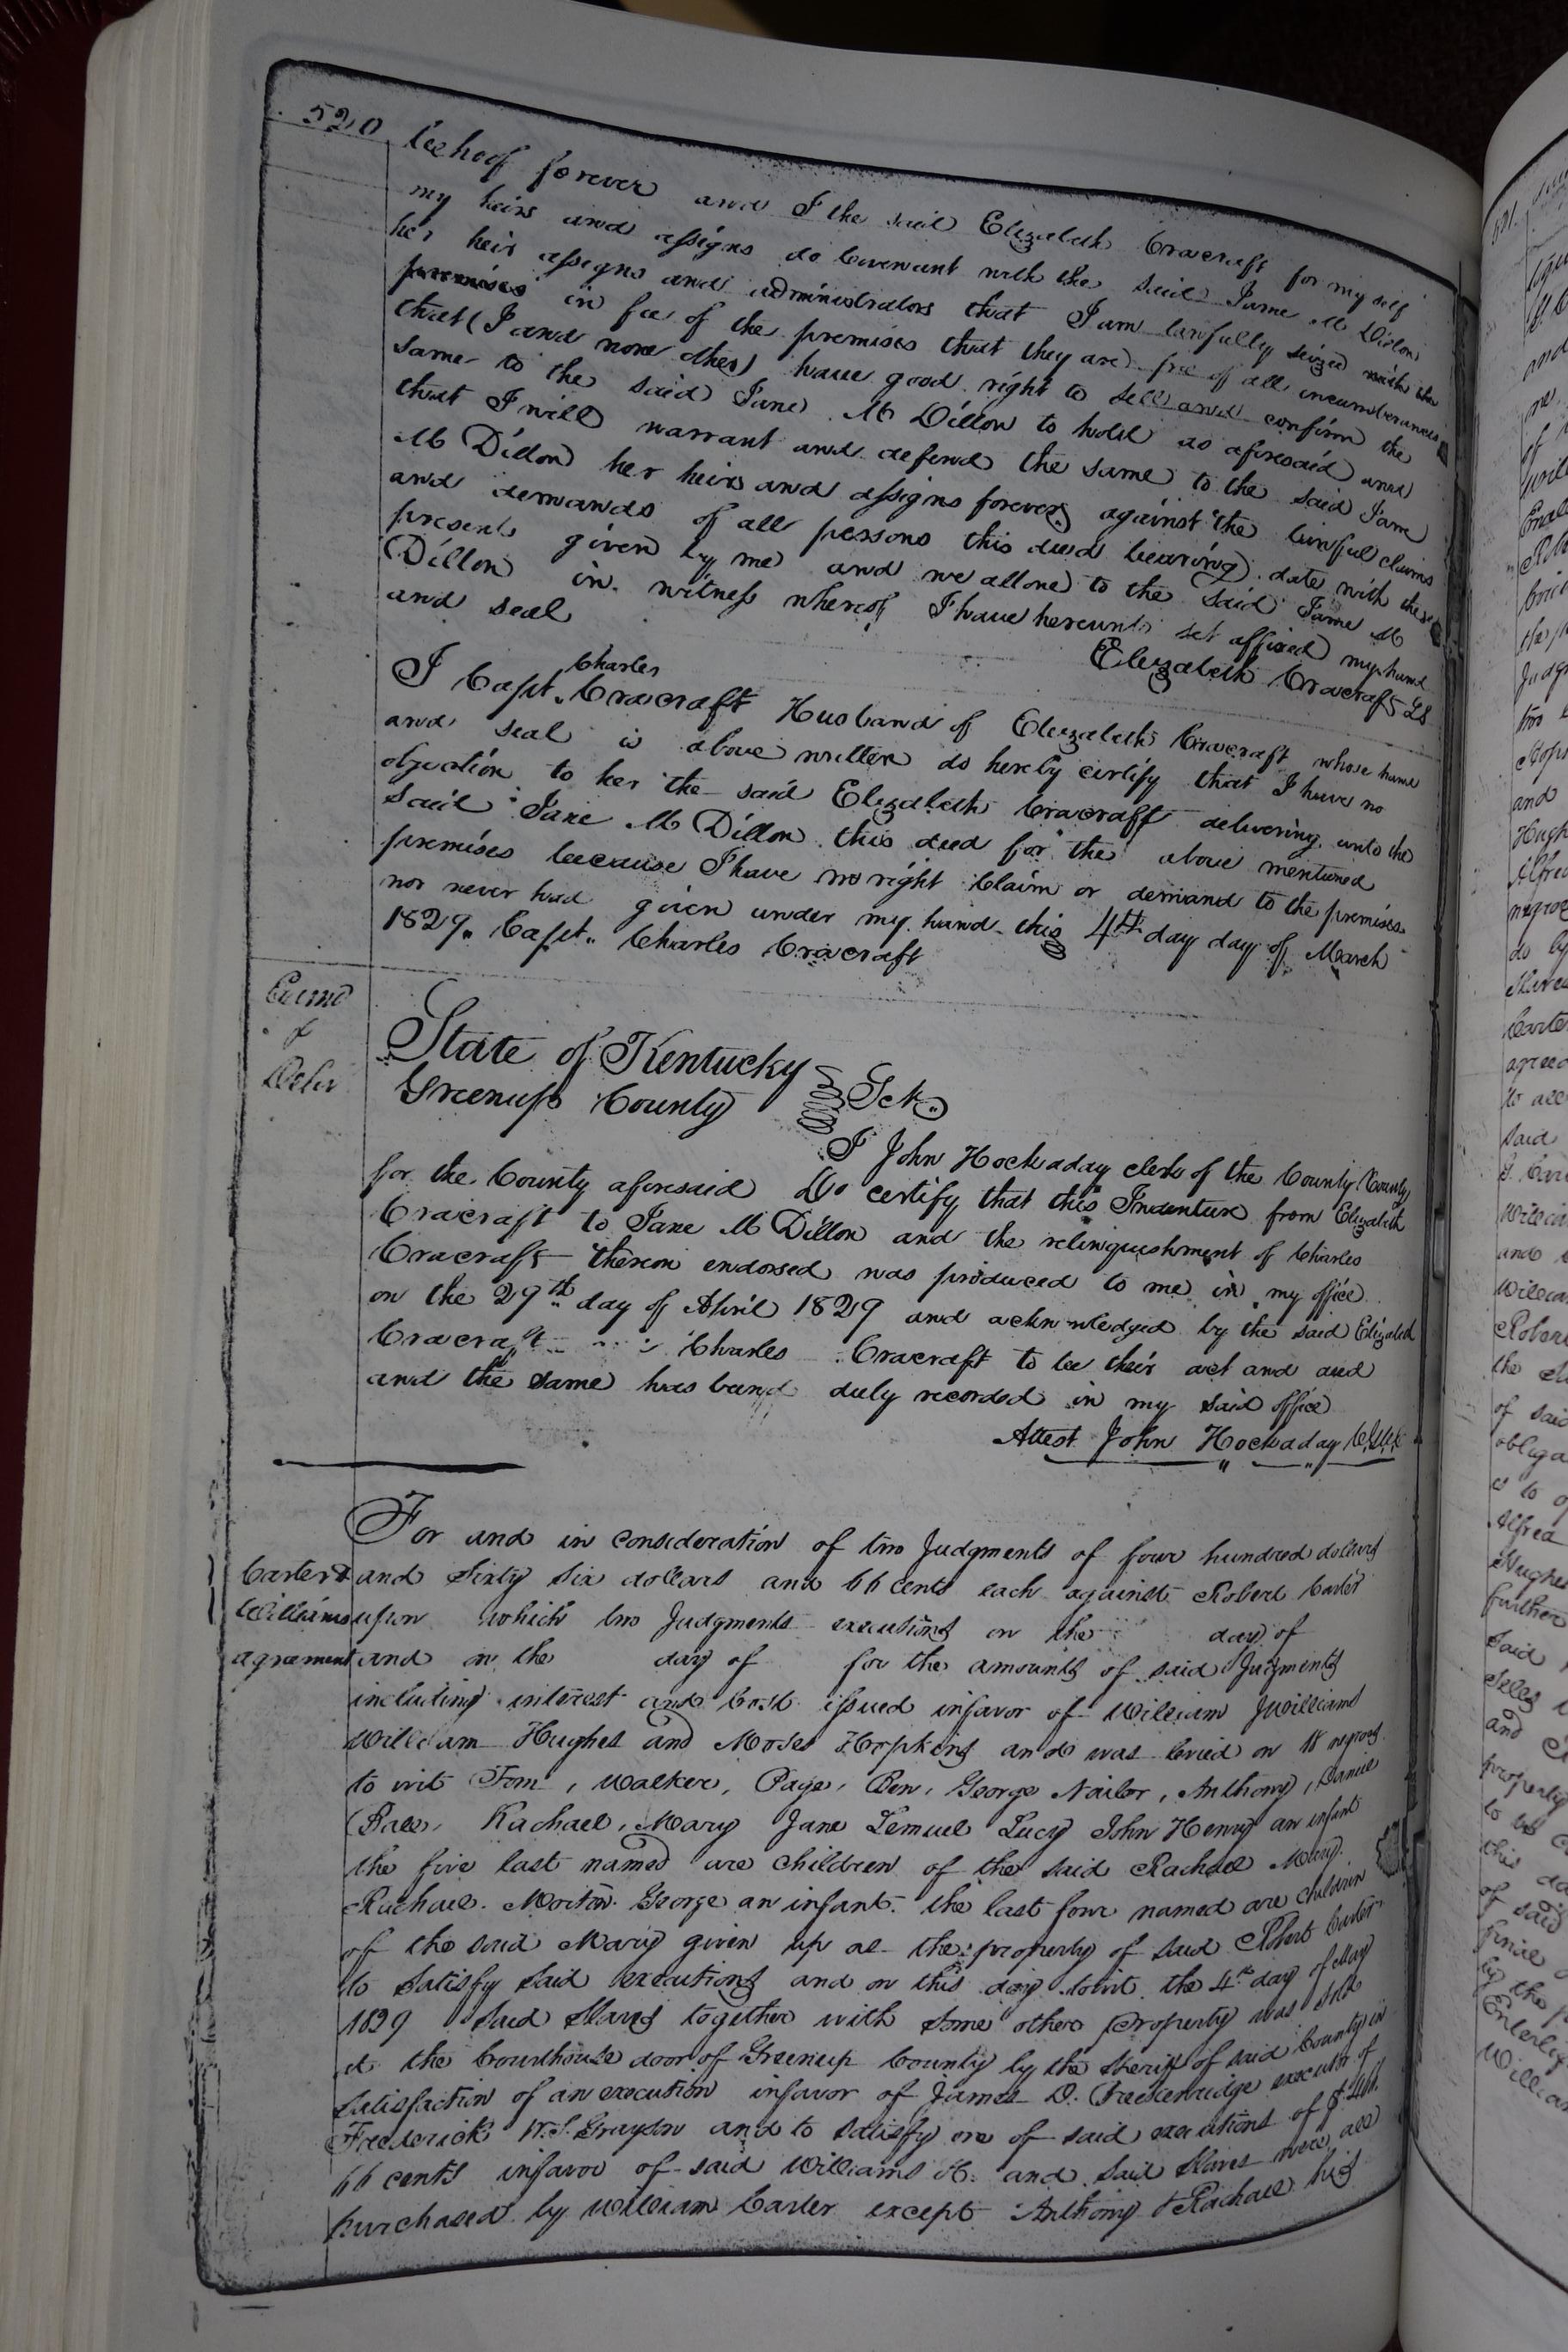 520
beehoof forever and I the said Elizabeth Cracraft for my self
my heirs and assigns do Covenant with the said Jane Mc Dillon
her heir assigns and administrators that I am lawfully seized with the
premises in fee of the premises that they are free of all incumbrances
that (I and none other) have good right to sell and confirm the
same to the said Jane Mc Dillon to hold as aforesaid and
that I will warrant and defend the same to the said Jane
Mc Dillon her heirs and assigns forever against the lawful claims
and demands of all persons this deed bearing date with these
presents given by me and me allone to the said Jane Mc
Dillon in witness whereof I have hereunto set affixed my hand
and seal
Elizabeth Cracraft LS
I Capt. Charles Cracraft Husband of Elizabeth Cracraft whose hand
and seal is above written do hereby certify that I have no
objection to her the said Elizabeth Cracraft delivering unto the
said Jane Mc Dillon this deed for the above mentioned
premises because I have no right Claim or demand to the premises
nor never had given under my hand this 4th day day of March
1829. Capt. Charles Cracraft
Examd
&
Delv
State of Kentucky
Greenup County Sct.
I John Hockaday clerk of the County County
for the County aforesaid Do certify that this Indenture from Elizabeth
Cracraft to Jane Mc Dillon and the relinquishment of Charles
Cracraft thereon endorsed was produced to me in my office
on the 29th day of April 1829 and acknowledged by the said Elizabeth
Cracraft Charles Cracraft to be their act and deed
and the same has band duly recorded in my said office
Attest John Hockaday
For and in consideration of two Judgments of four hundred dollars
Carter & and Sixty Six dollars and 66 cents each against Robert Carter
Williams upon which two Judgments executions on the day of
agreement and on the day of for the amounts of said Judgments
including interest and Cost issued infavor of William J Williams
William Hughes and Moses Hopkins and was levied on 18 negroes
to wit Tom, Walker, Page, Ben, George Nailor, Anthony, Daniel
Rachael, Mary Jane Lemuel Lucy John Henry an infant
the five last named are children of the said Rachael Mary
Rachael. Morton George an infant. the last four named are children
of the said Mary given up as the property of said Robert Carter
to Satisfy Said executions and on this day towit the 4th day of May
1829 Said Slaves together with Some other Property was Sold
at the Courthouse door of Greenup County by the Sheriff of said County in
Satisfaction of an execution infavor of James D. Breckenridge executor of
Frederick W. S. Grayson and to Satisfy one of said executions of $466.
66 cents infavor of said Williams H. and Said Slaves were all
purchased by William Carter except Anthony & Rachael his